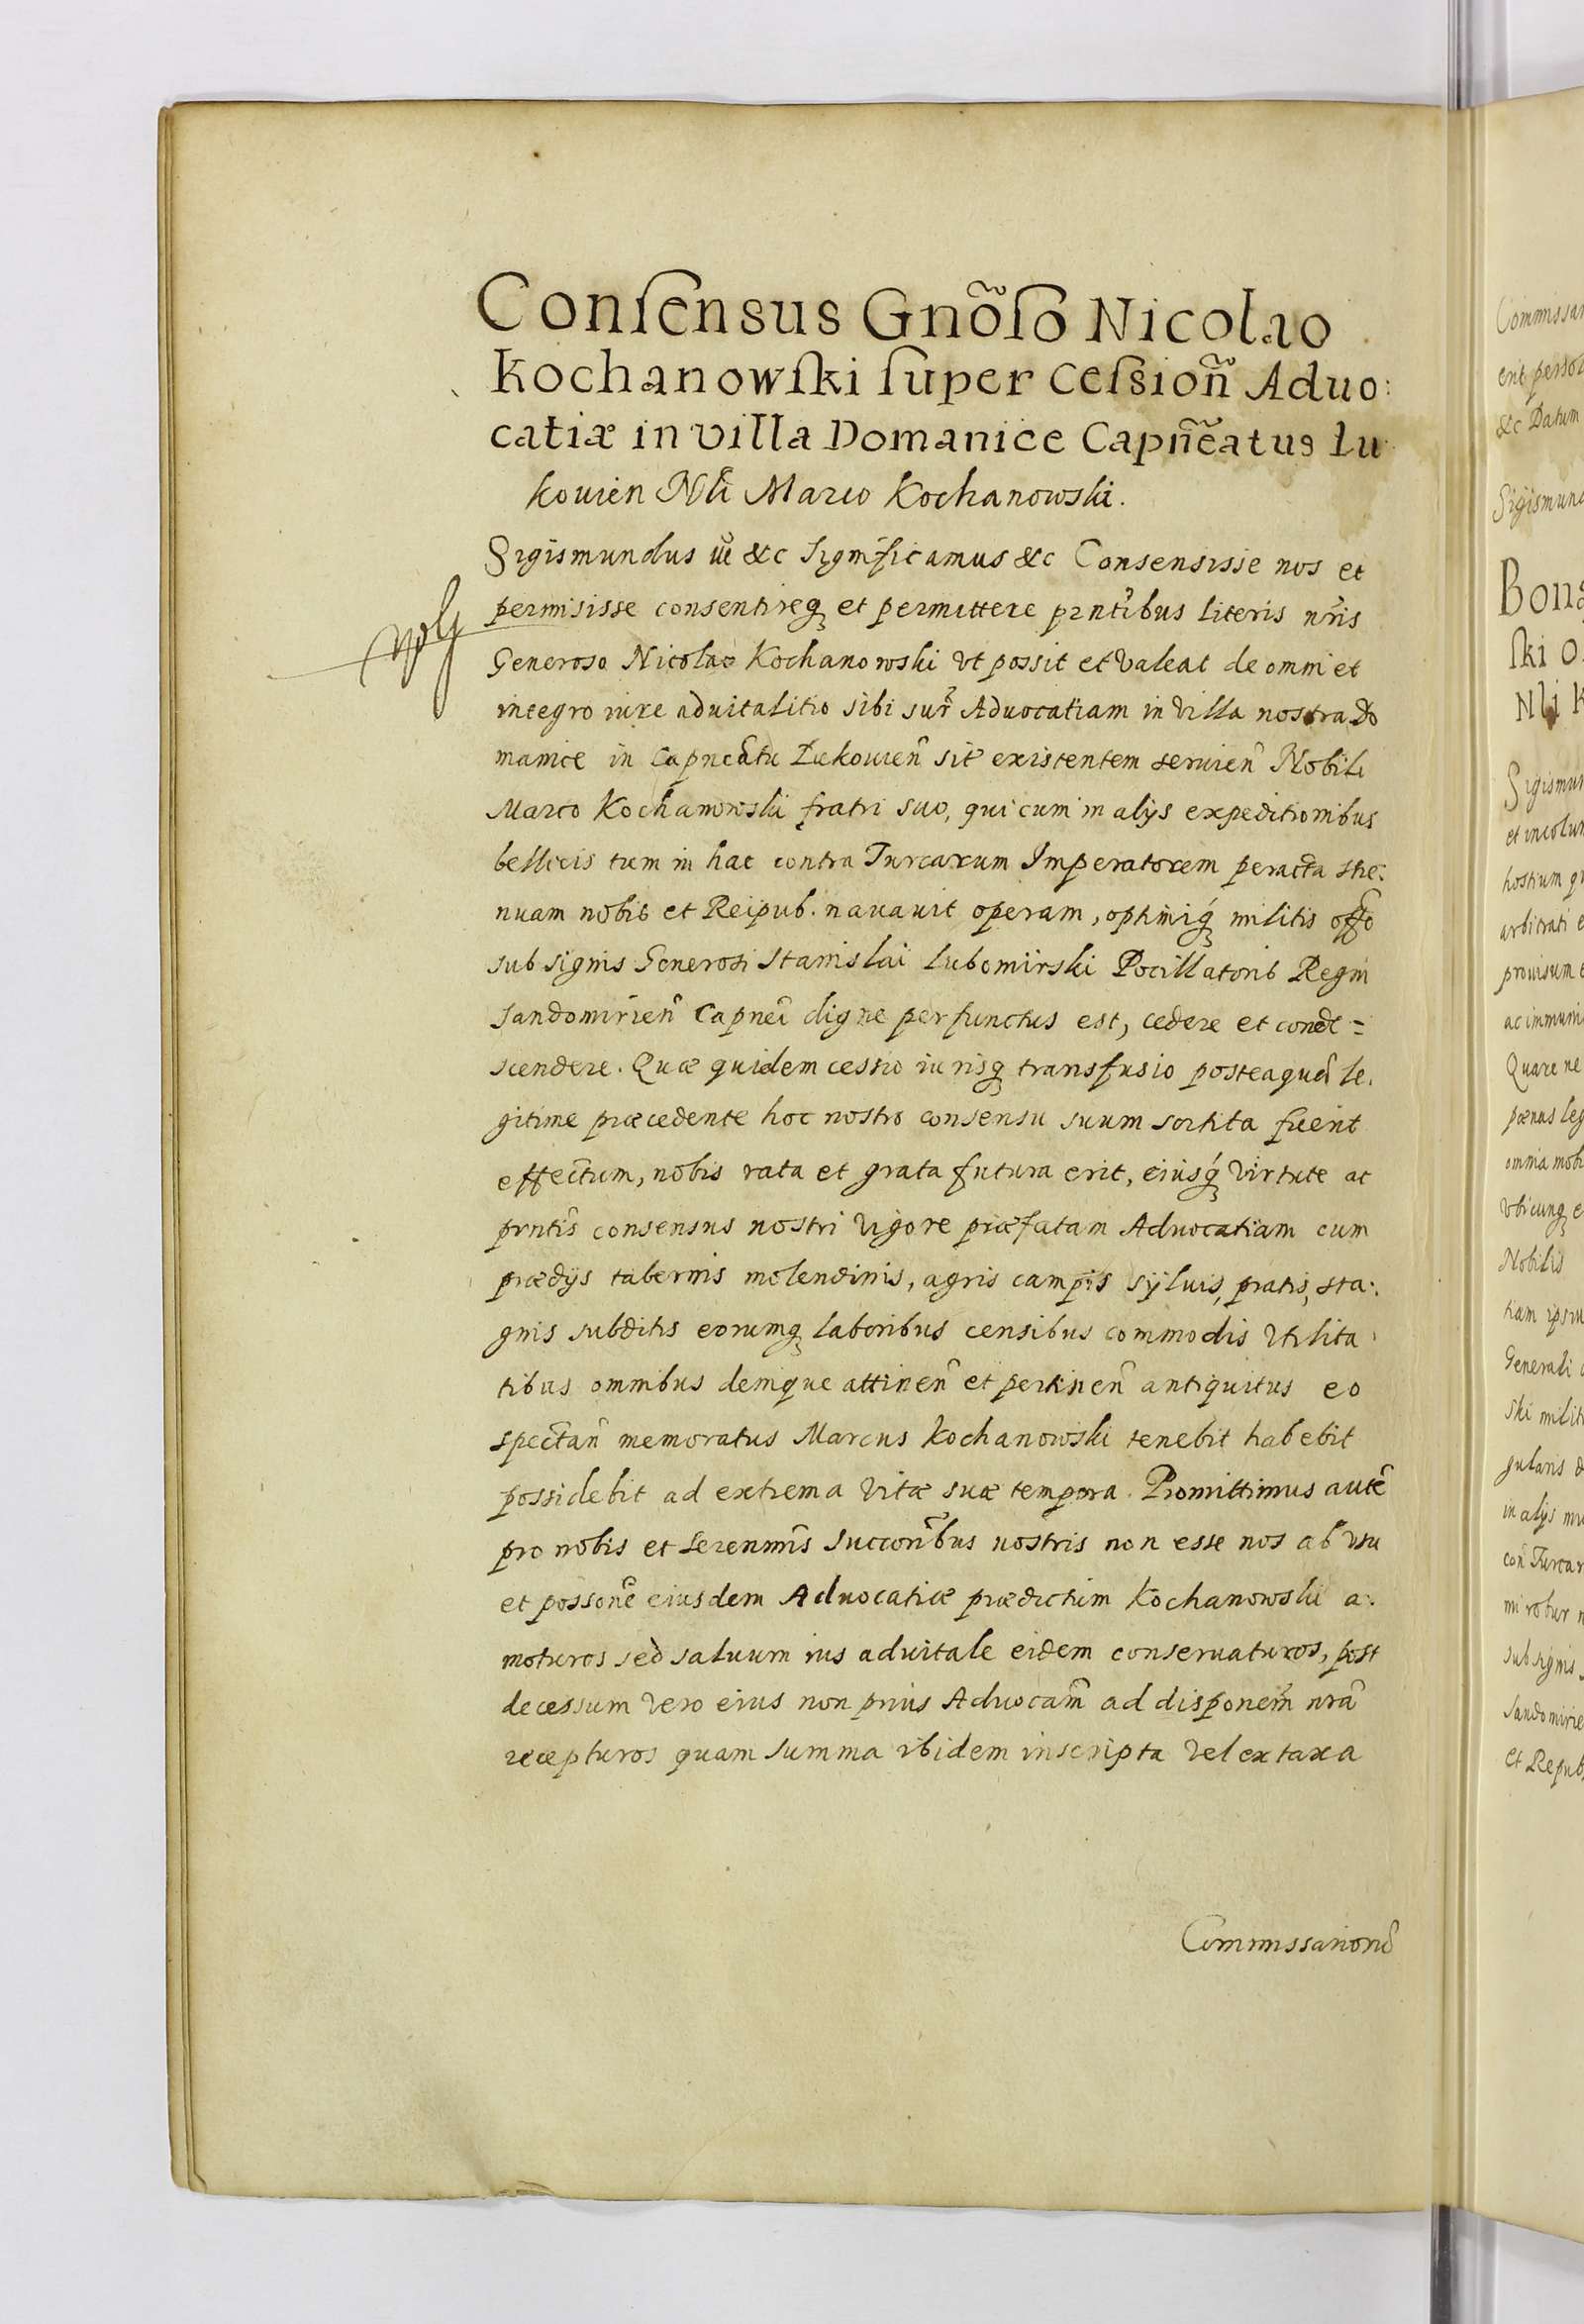 Conſensus Gnõſo Nicolao
Kochanowſki ſuper Ceſsioñ Aduo:
catiæ in villa Domanice Capñeatus Lu
kouien Nli Marco Kochanowski.
Sigismundus &c Significamus &c Consensisse nos et
permisisse consentireq et permittere prntibus literis nris
Generoso Nicolao Kochanowski vt possit et valeat de omni et
integro iure aduitalitio sibi Aduocatiam in villa nostra Do
manice in Capneatu Łukouien sitẽ existentem seruien Nobili
Marco Kochanowski fratri suo, qui cum in alijs expeditionibus
bellicis tum in hac contra Turcarum Imperatorem peracta stre:
nuam nobis et Reipub. nauauit operam, optimiq militis offo
sub signis Generosi Stanislai Lubomirski Pocillatoris Regni
Sandomirien Capnei digne perfunctus est, cedere et conde=
scendere. Quæ quidem cessio iurisq transfusio posteaquã le.
gitime præcedente hoc nostro consensu suum sortita fuerit
effectum, nobis rata et grata futura erit, eiusq virtute ac
prntis consensus nostri vigore præfatam Aduocatiam cum
prædijs tabernis molendinis, agris campis syluis, pratis, sta:
gnis subditis eorumq laboribus censibus commodis vtilita
tibus omnibus denique attinen et pertinen antiquitus eo
spectan memoratus Marcus Kochanowski tenebit habebit
possidebit ad extrema vitæ suæ tempora. Promittimus autẽ
pro nobis et Serenmis Succoribus nostris non esse nos ab vsu
et possone eiusdem Aduocatiæ prædictum Kochanowski a:
moturos sed saluum ius aduitale eidem conseruaturos, post
decessum vero eius non prius Aduocam ad disponem nrã
recepturos quam summa ibidem inscripta vel ex taxa
Commissarionũ
Commissar
&c Datum
Sigismund
Bon
ſki
Nli K
Sigismun
et incolum
hostium
arbitrati
prouisum
ac immuni
Quare ne
pœnas leg
omnia mobi
vbicunq e
Nobilis
tiam ipsiu
Generali
ski milit
gularis
in alijs
con Turcar
mi robur
sub signis
Sandomirie
et Repub